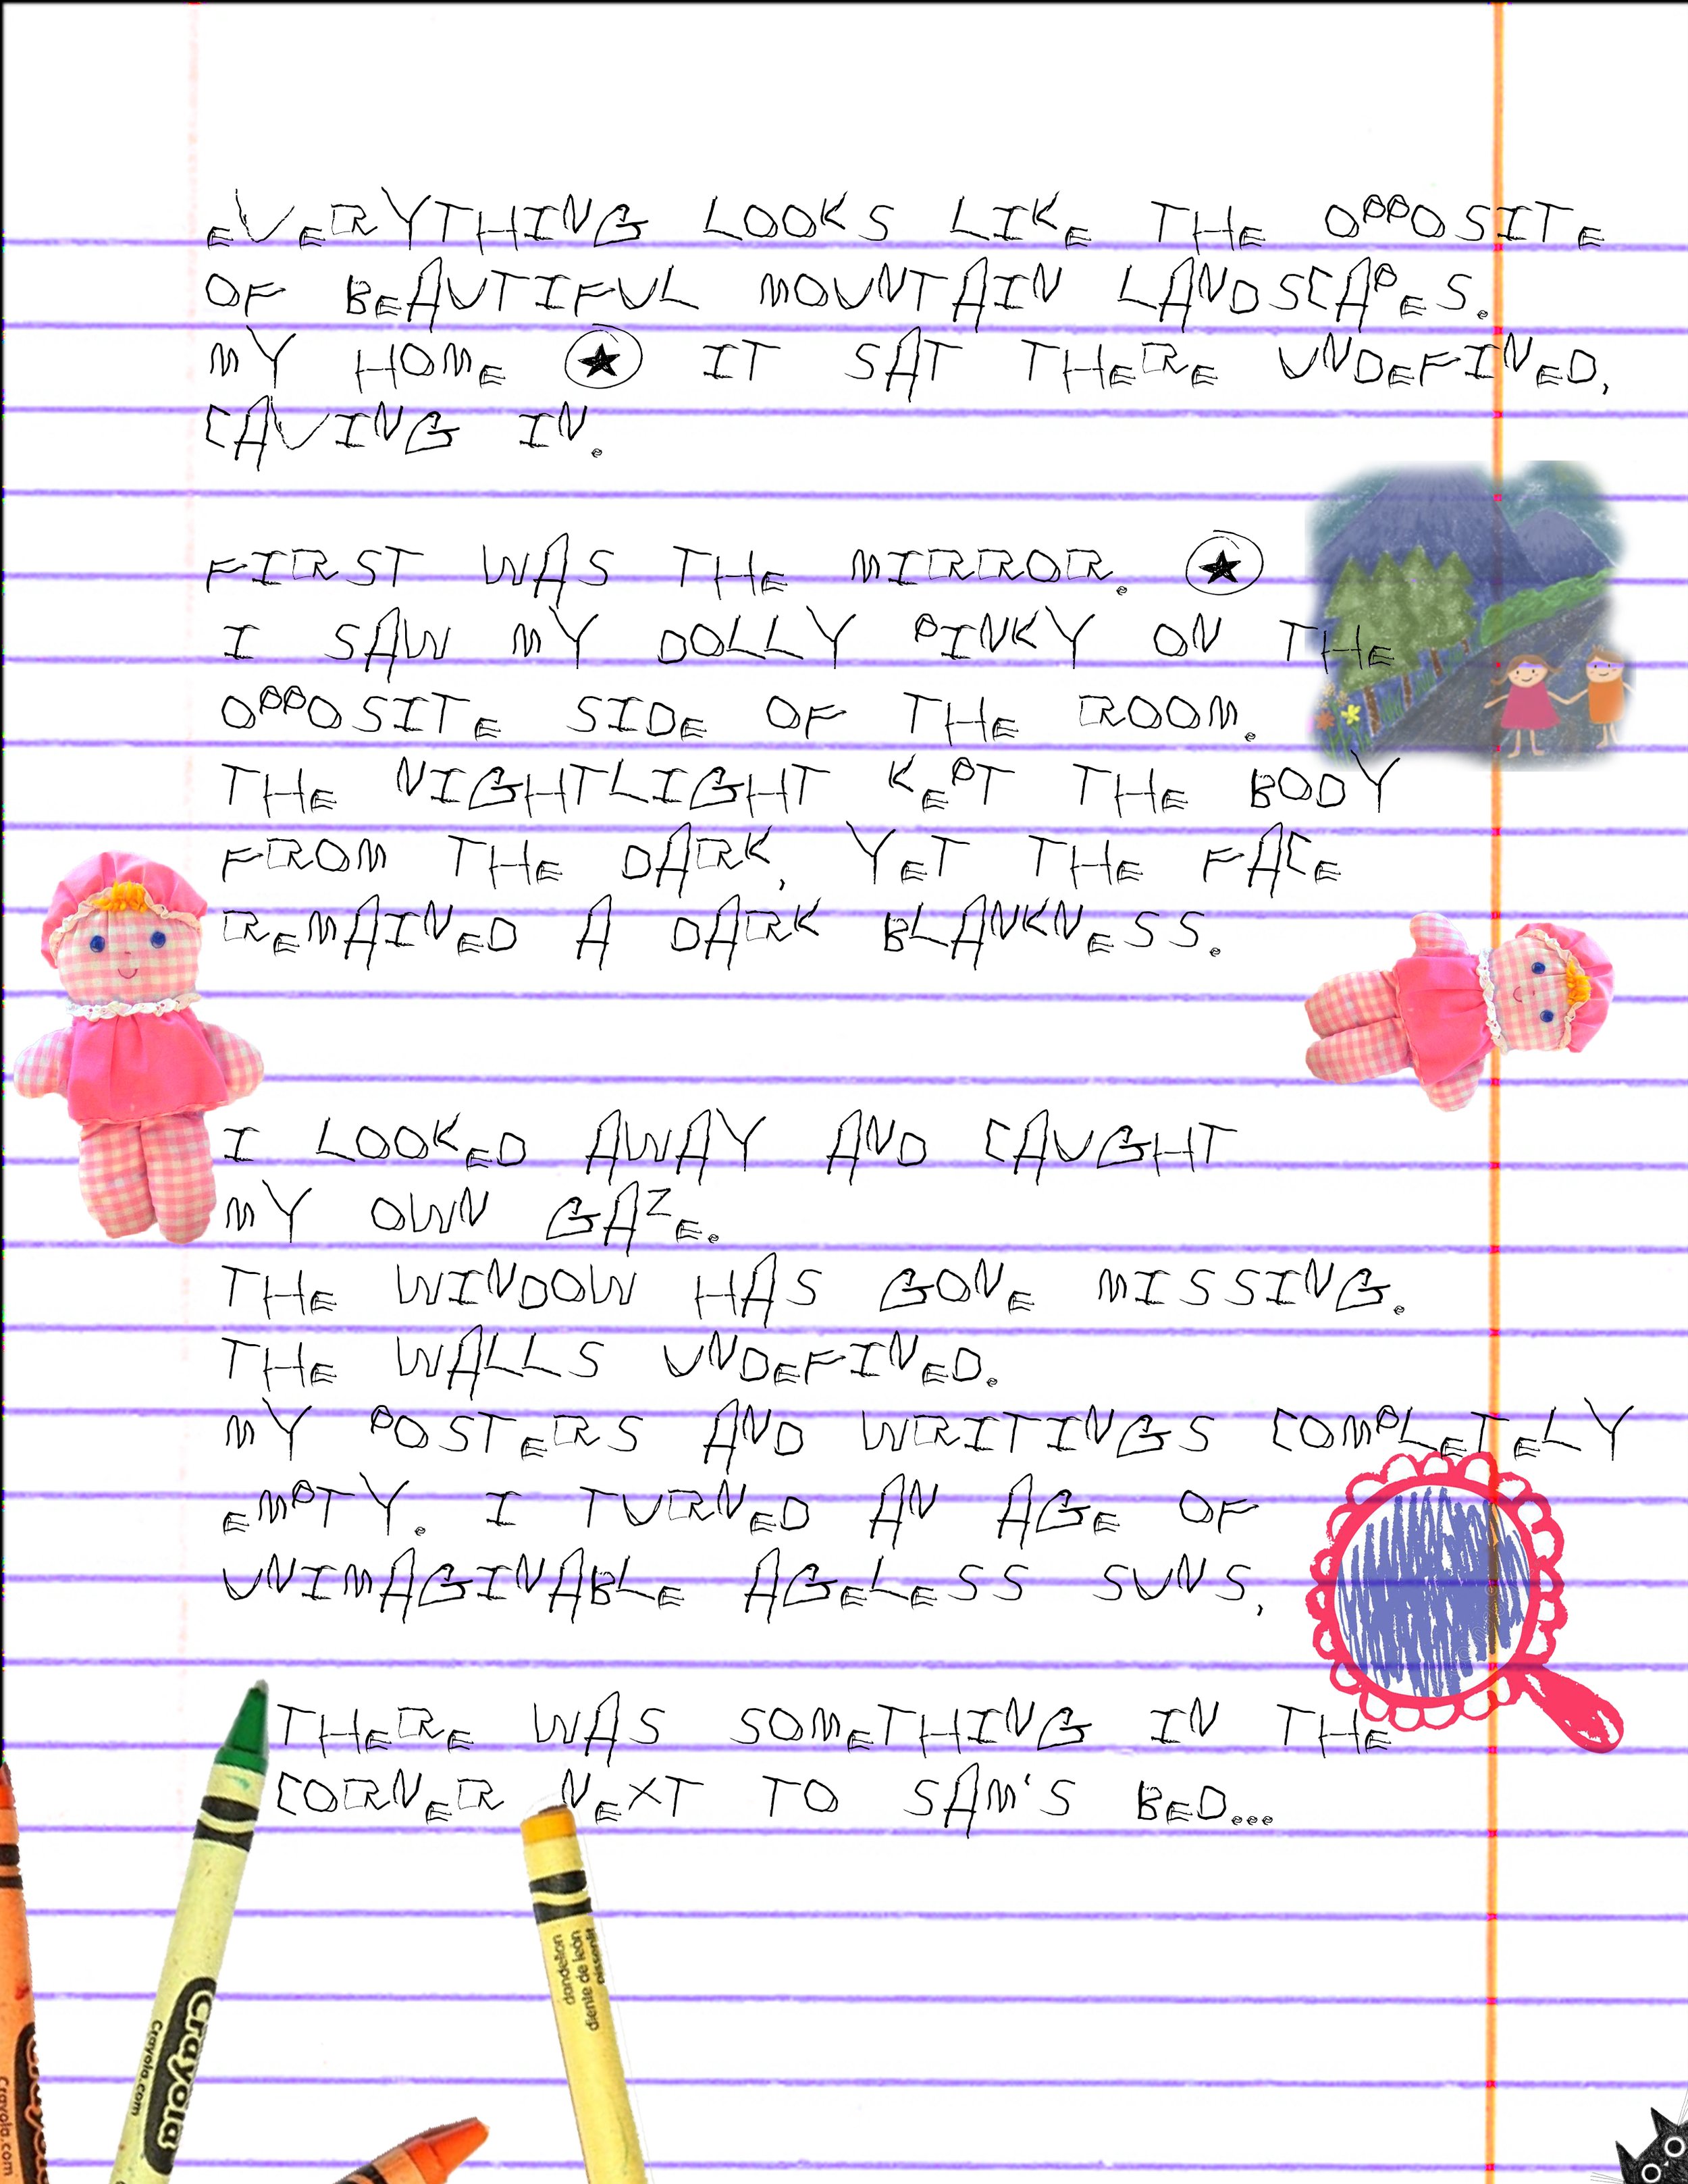 EVERYTHING LOOKS LIKE THE OPPOSITE
OF BEAUTIFUL MOUNTAIN LANDSCAPES.
MY HOME ★ IT SAT THERE UNDEFINED,
CAVING IN.
FIRST WAS THE MIRROR. ★
I SAW MY DOLLY PINKY ON THE
OPPOSITE SIDE OF THE ROOM.
THE NIGHTLIGHT KEPT THE BODY
FROM THE DARK, YET THE FACE
REMAINED A DARK BLANKNESS.
I LOOKED AWAY AND CAUGHT
MY OWN GAZE.
THE WINDOW HAS GONE MISSING.
THE WALLS UNDEFINED.
MY POSTERS AND WRITINGS COMPLETELY
EMPTY. I TURNED AN AGE OF
UNIMAGINABLE AGELESS SUNS,
THERE WAS SOMETHING IN THE
CORNER NEXT TO SAM'S BED...
Crayola
Crayola.com
dandelion
diente de león
pissenlit
Crayola.com